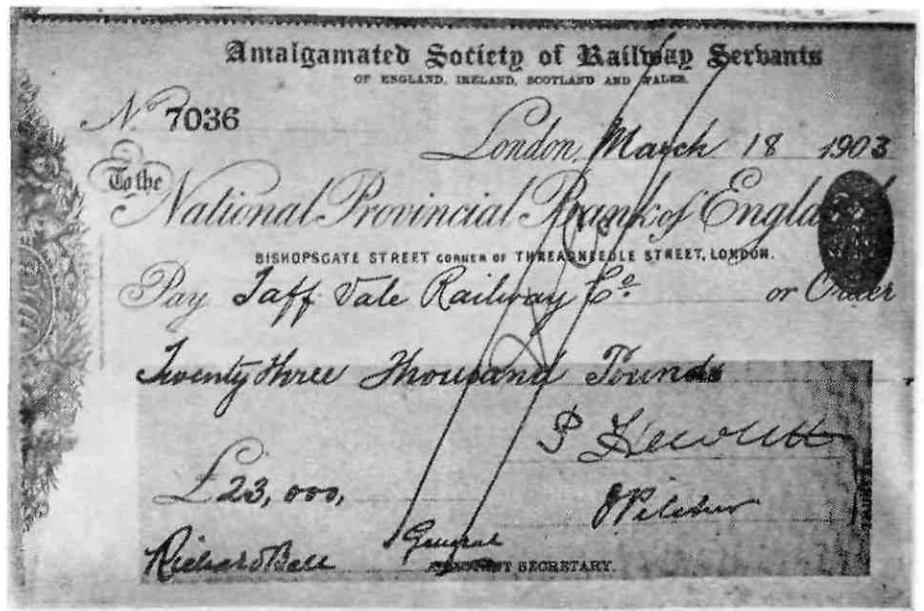 Amalgamated Society of Railway Servants
OF ENGLAND, IRELAND, SCOTLAND AND WALES.
No 7036
London, March 18 1903
To the
National Provincial Bank of England
BISHOPSGATE STREET CORNER OF THREADNEEDLE STREET, LONDON.
Pay Taff Vale Railway Co. or Order
Twenty three Thousand Pounds
P Hewlett
£23,000,
J Pilcher
Richard Bell General
SECRETARY.